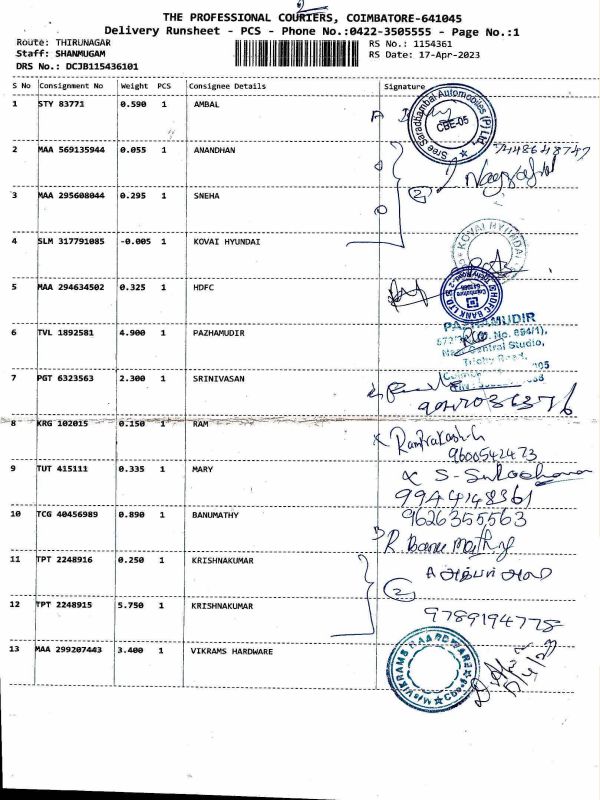 2
THE PROFESSIONAL COURIERS, COIMBATORE-641045
Delivery Runsheet - PCS - Phone No.:0422-3505555 - Page No.:1
Route: THIRUNAGAR
Staff: SHANMUGAM
DRS No.: DCJB115436101
RS No.: 1154361
RS Date: 17-Apr-2023
S No Consignment No Weight PCS Consignee Details Signature
1 STY 83771 0.590 1 AMBAL
Sree Saradhambal Automobiles (P) Ltd.
CBE-05
2 MAA 569135944 0.055 1 ANANDHAN
7448648747
2
3 MAA 295608044 0.295 1 SNEHA
4 SLM 317791085 -0.005 1 KOVAI HYUNDAI
KOVAI HYUNDAI
5 MAA 294634502 0.325 1 HDFC
HDFC BANK LTD
Coimbatore
6 TVL 1892581 4.900 1 PAZHAMUDIR
PAZHAMUDIR
Central Studio,
Trichy Road,
7 PGT 6323563 2.300 1 SRINIVASAN
8 KRG 102015 0.150 1 RAM
Ramprakash.G
9600542473
9 TUT 415111 0.335 1 MARY
S-Sulochana
9944148361
10 TCG 40456989 0.890 1 BANUMATHY
9626355563
R. Banumathy
11 TPT 2248916 0.250 1 KRISHNAKUMAR
2
12 TPT 2248915 5.750 1 KRISHNAKUMAR
9789194778
13 MAA 299207443 3.400 1 VIKRAMS HARDWARE
M/s VIKRAMS HAARDWARE